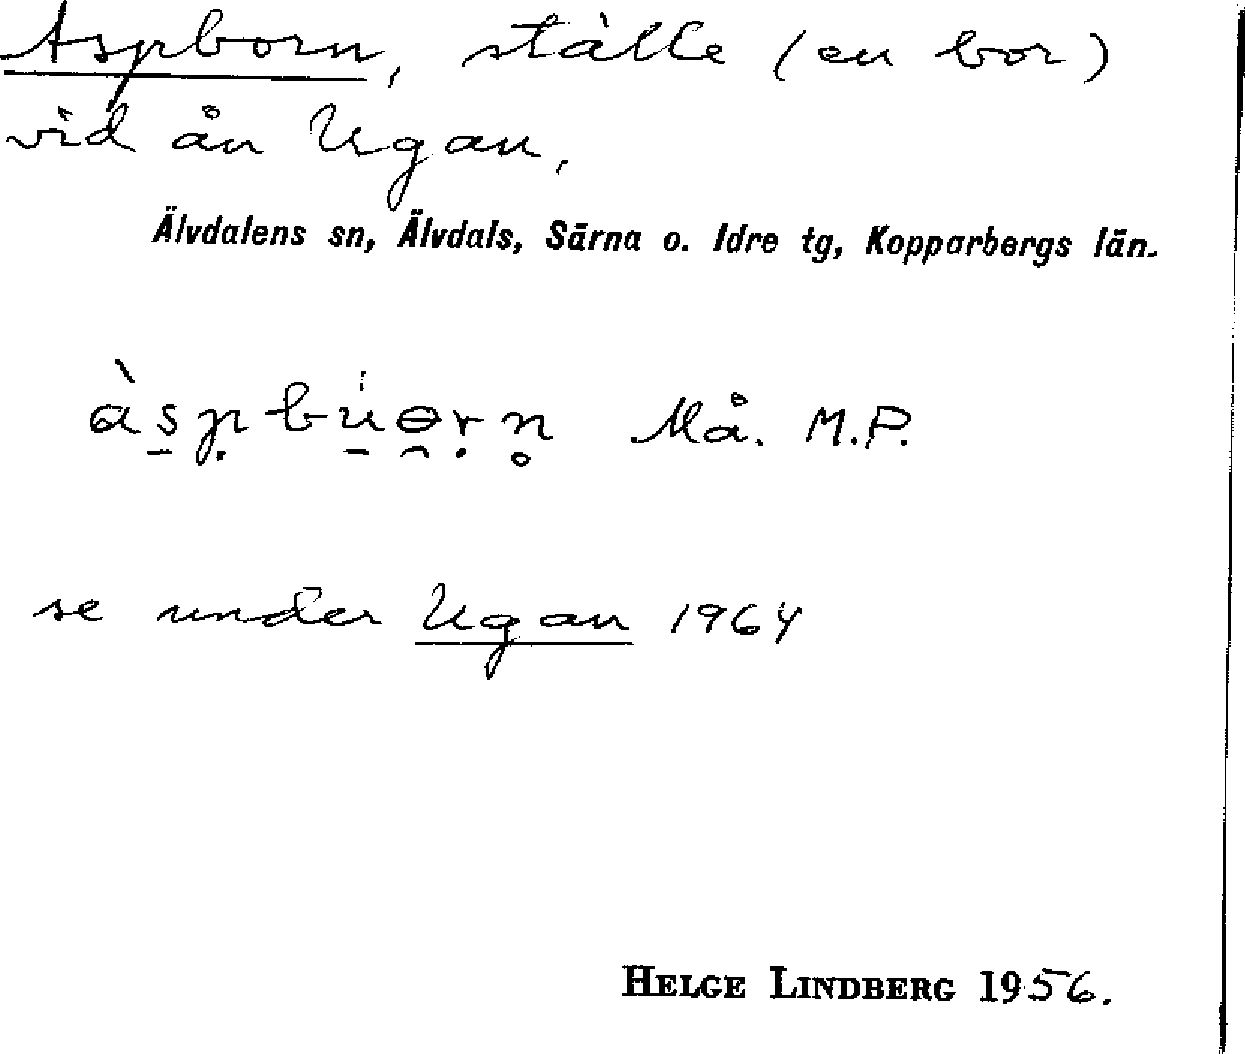 Aspborn, ställe (en bor)
vid ån Ugan,
Älvdalens sn, Älvdals, Särna o. Idre tg, Kopparbergs län.
às̱p̣bú̱ɵ̯ṛn̥ Må. M.P.
se under Ugan 1964
HELGE LINDBERG 1956.